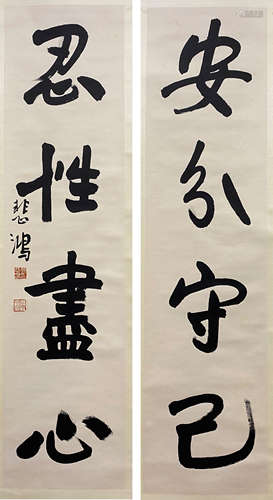 安分守己
忍性盡心
悲鴻